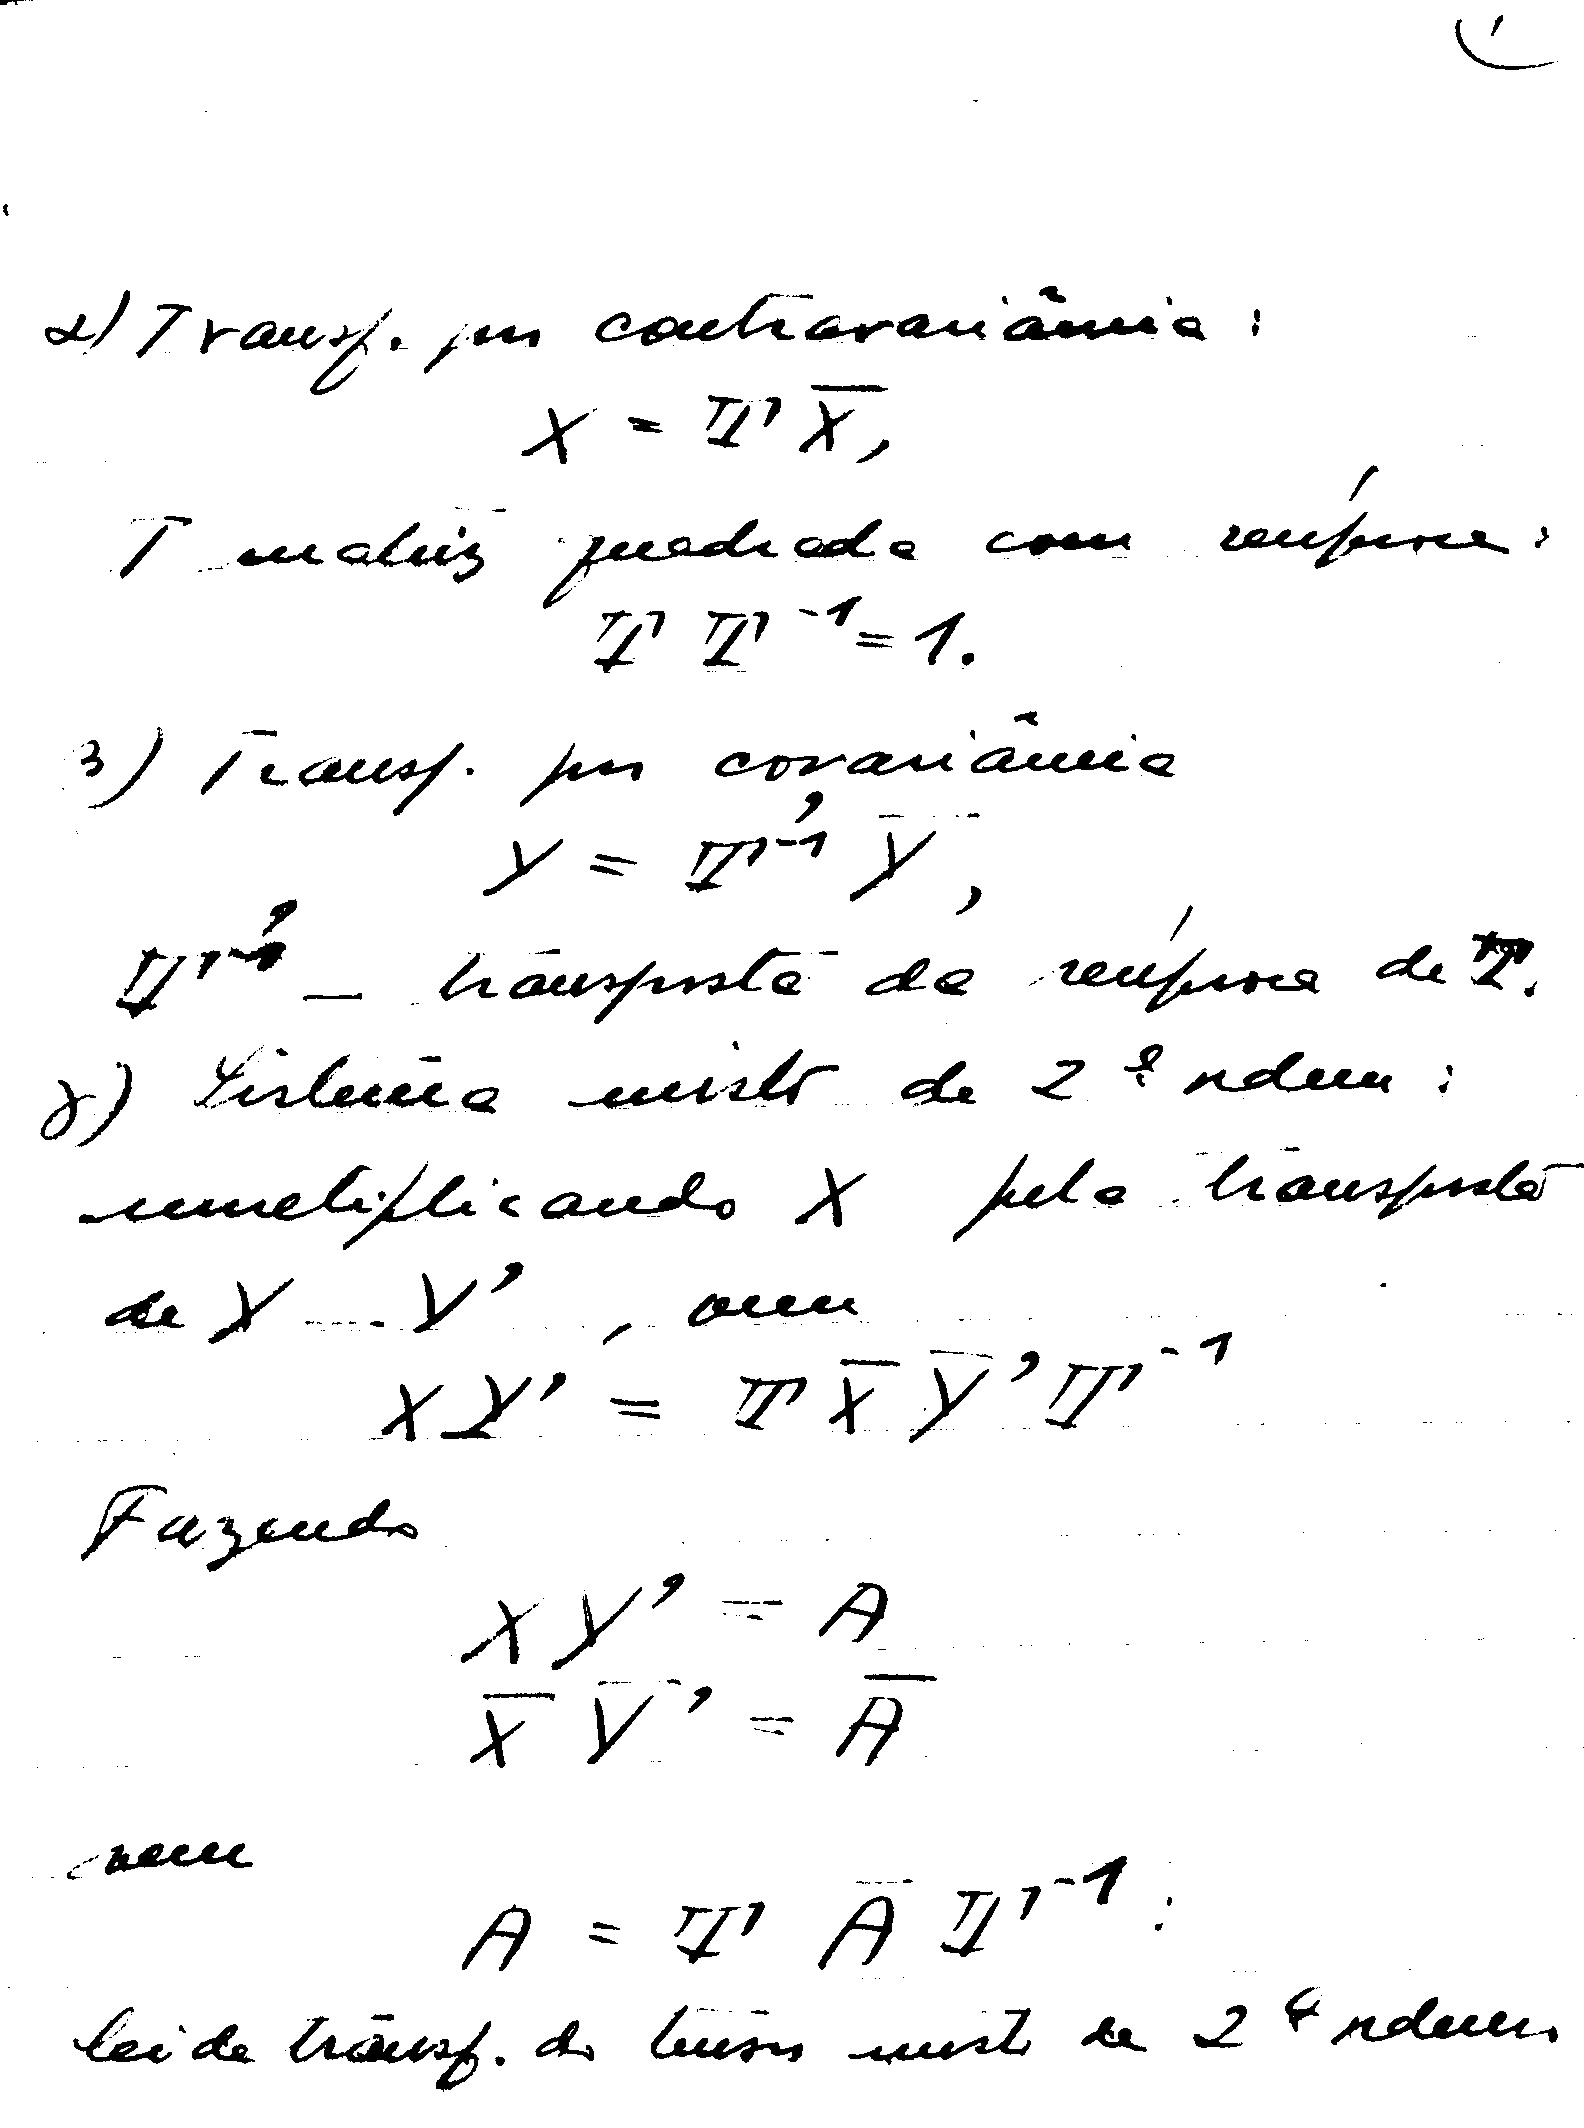 α) Transf. por contravariância:
X = T X̅,
T matriz quadrada com recíproca:
T T⁻¹ = 1.
β) Transf. por covariância
Y = T⁻¹' Y̅,
T⁻¹' — transposta da recíproca de T.
γ) Sistema misto de 2ª ordem:
multiplicando X pela transposta
de Y — Y', vem
X Y' = T X̅ Y̅' T⁻¹
Fazendo
X Y' = A
X̅ Y̅' = A̅
vem
A = T A̅ T⁻¹:
lei de transf. do tensor misto de 2ª ordem.